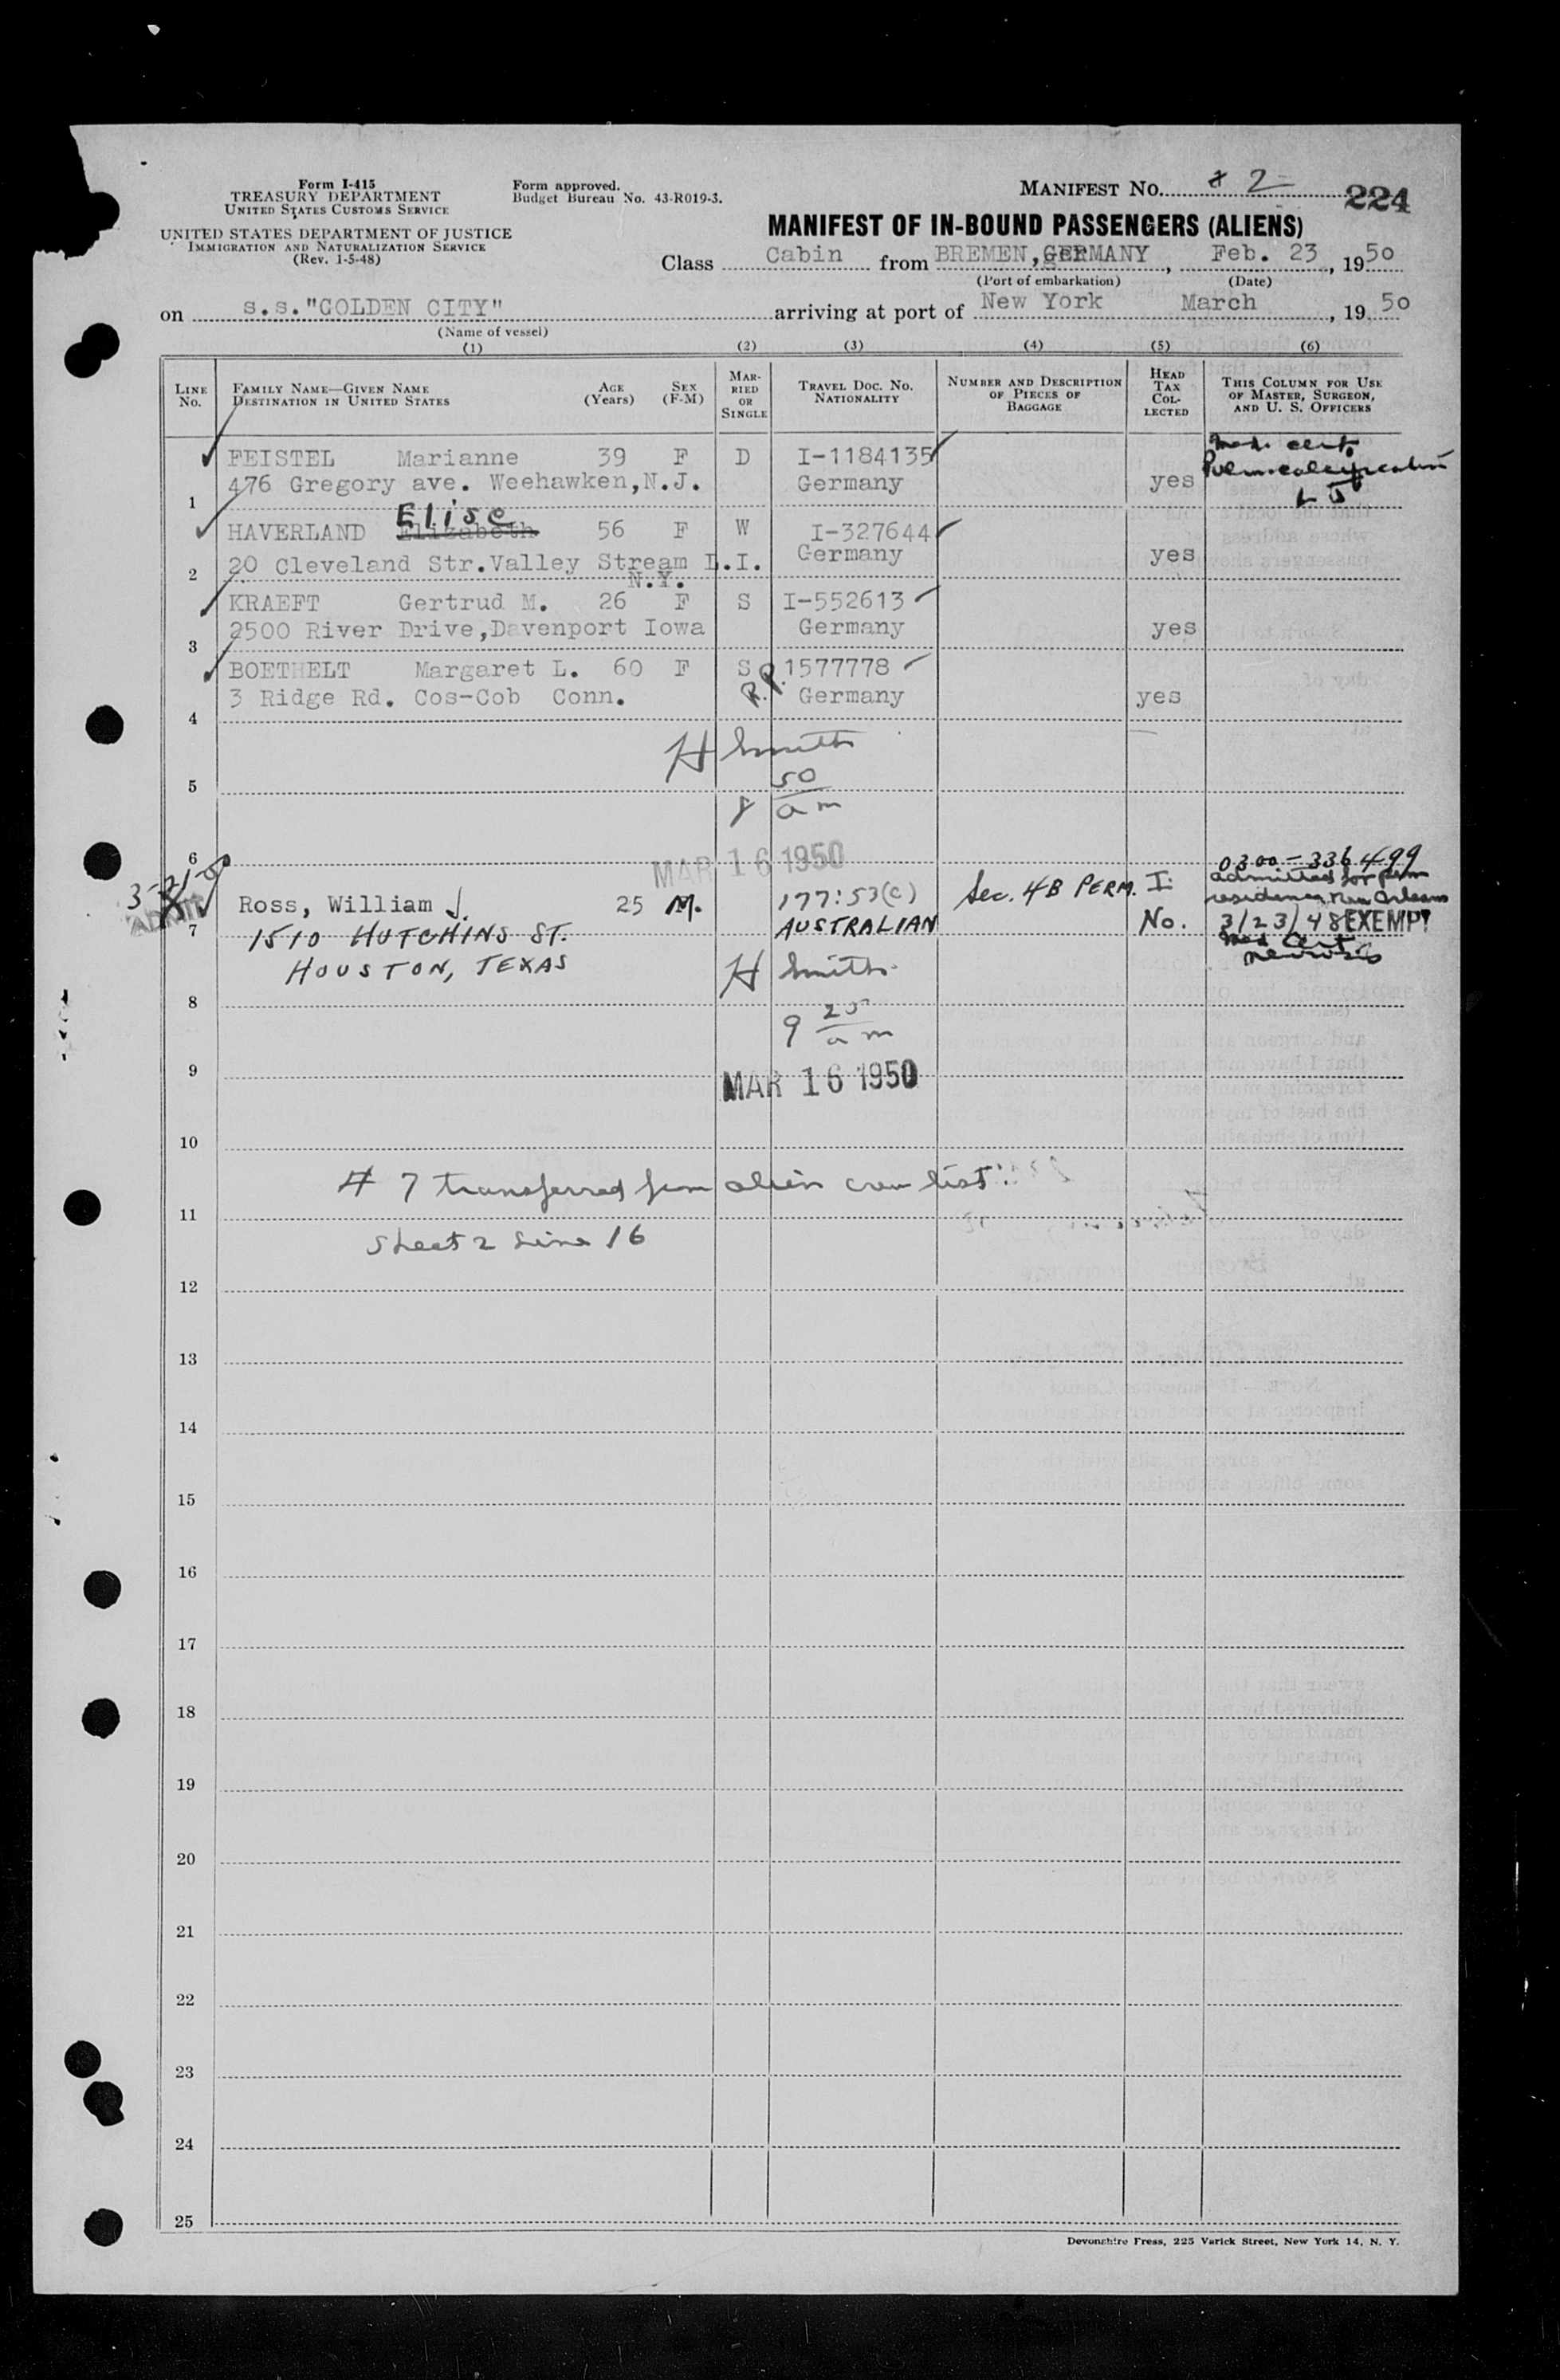 Form I-415
TREASURY DEPARTMENT
UNITED STATES CUSTOMS SERVICE
UNITED STATES DEPARTMENT OF JUSTICE
IMMIGRATION AND NATURALIZATION SERVICE
(Rev. 1-5-48)
Form approved.
Budget Bureau No. 43-R019-3.
MANIFEST NO. # 2 224
MANIFEST OF IN-BOUND PASSENGERS (ALIENS)
Class Cabin from BREMEN, GERMANY, Feb. 23, 1950
(Port of embarkation) (Date)
on s.s."GOLDEN CITY" arriving at port of New York March, 19 50
(Name of vessel)
(1) (2) (3) (4) (5) (6)
LINE No. FAMILY NAME—GIVEN NAME DESTINATION IN UNITED STATES AGE (Years) SEX (F-M) MARRIED OR SINGLE TRAVEL DOC. NO. NATIONALITY NUMBER AND DESCRIPTION OF PIECES OF BAGGAGE HEAD TAX COLLECTED THIS COLUMN FOR USE OF MASTER, SURGEON, AND U. S. OFFICERS
FEISTEL Marianne 39 F D I-1184135 Med. cert.
1 476 Gregory ave. Weehawken,N.J. Germany yes
Elise
HAVERLAND Elizabeth 56 F W I-327644
2 20 Cleveland Str.Valley Stream L.I. Germany yes
N.Y.
KRAEFT Gertrud M. 26 F S I-552613
3 2500 River Drive,Davenport Iowa Germany yes
BOETHELT Margaret L. 60 F S R.P. 1577778
4 3 Ridge Rd. Cos-Cob Conn. Germany yes
H Smith
5
8 50 am
6
MAR 16 1950
0300-336499
admitted for perm
residence New Orleans
3/23/48 EXEMPT
Med Cert
Ross, William J. 25 M. 177:53(C) Sec. 4B PERM. I.
7 1510 HUTCHINS ST. AUSTRALIAN No.
HOUSTON, TEXAS
H Smith
8
9 25 am
9
MAR 16 1950
10
# 7 transferred from alien crew list
11
Sheet 2 Line 16
12
13
14
15
16
17
18
19
20
21
22
23
24
25
Devonshire Press, 225 Varick Street, New York 14, N. Y.